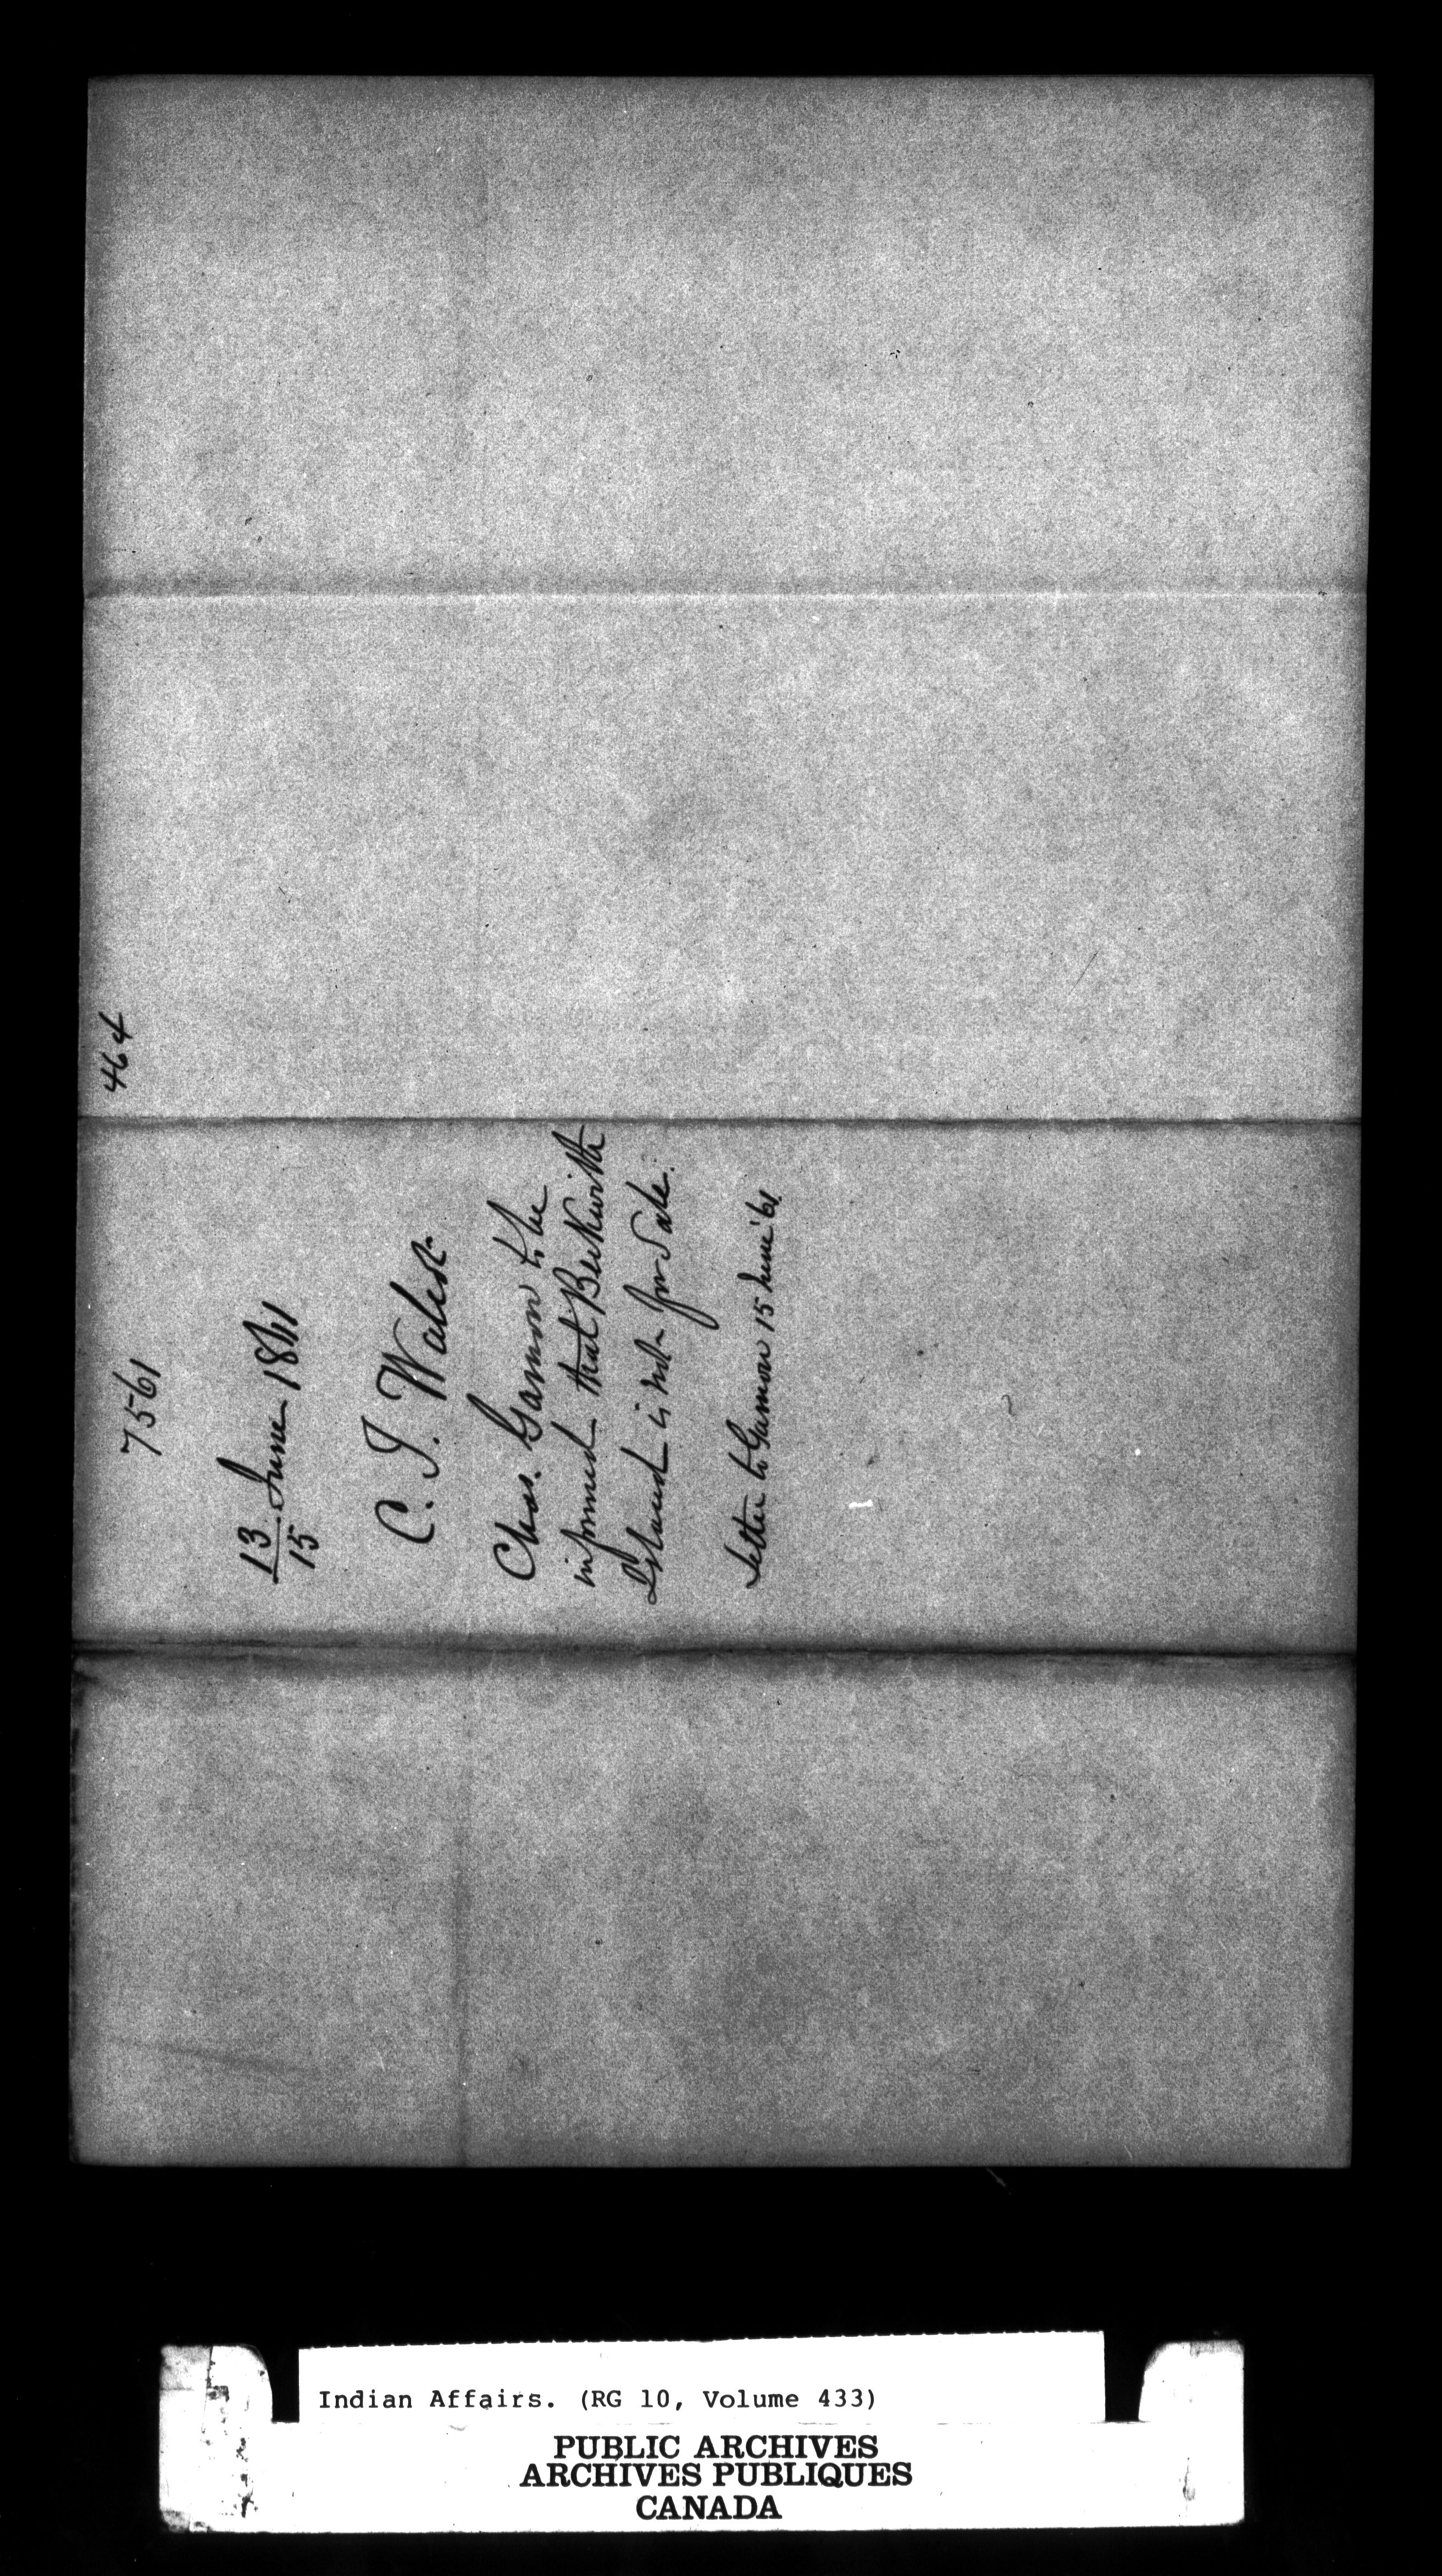 464
7561
13 June 1861
15
C. T. Walcot
Chas. Gamon to be
informed that Beckwith
Island is not for Sale.
Letter to Gamon 15 June '61
Indian Affairs. (RG 10, Volume 433)
PUBLIC ARCHIVES
ARCHIVES PUBLIQUES
CANADA